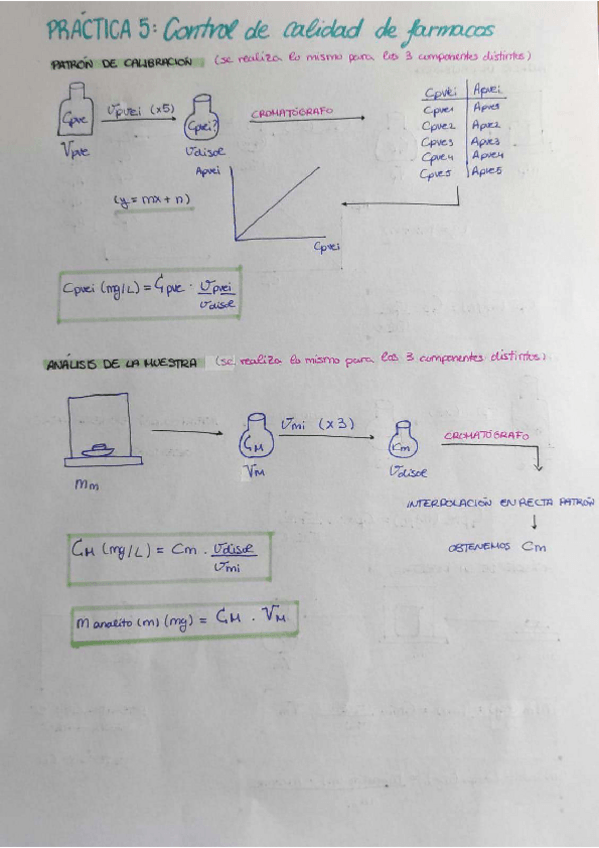 PRÁCTICA 5: Control de calidad de farmacos
PATRÓN DE CALIBRACIÓN (se realiza lo mismo para los 3 componentes distintos)
Cpve
Vpve
Vpvei (x5)
Cpvei?
Vdisol
CROMATÓGRAFO
Cpvei Apvei
Cpve1 Apve1
Cpve2 Apve2
Cpve3 Apve3
Cpve4 Apve4
Cpve5 Apve5
Apvei
(y = mx + n)
Cpvei
Cpvei (mg/L) = Cpve · Vpvei / Vdisol
ANÁLISIS DE LA MUESTRA (se realiza lo mismo para los 3 componentes distintos)
mm
CM
VM
Vmi (x3)
Cm
Vdisol
CROMATÓGRAFO
INTERPOLACIÓN EN RECTA PATRÓN
OBTENEMOS Cm
CM (mg/L) = Cm · Vdisol / Vmi
m analito (m) (mg) = CM · VM